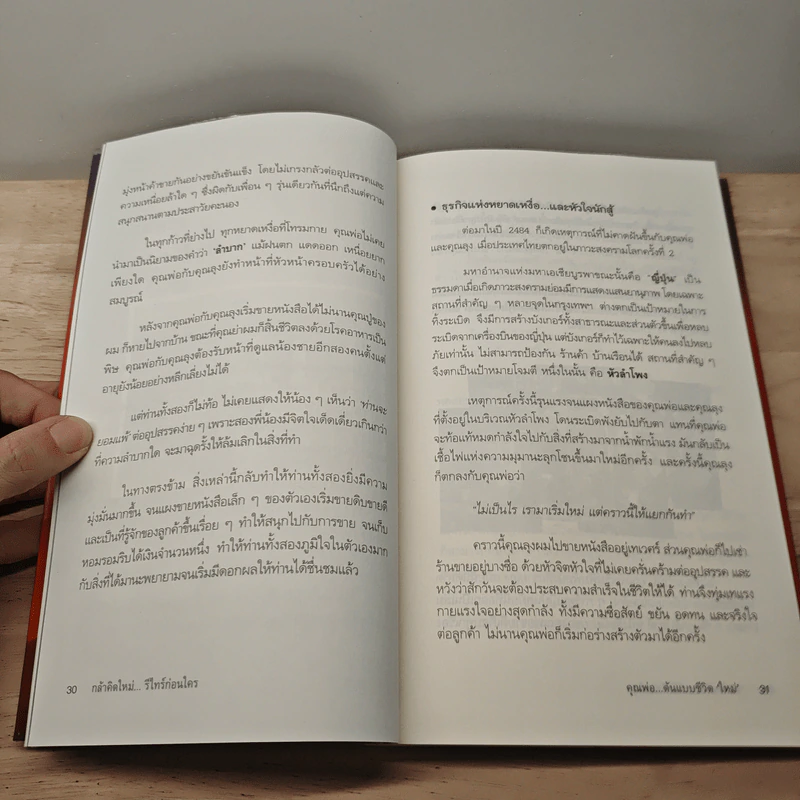 มุ่งหน้าค้าขายกันอย่างขยันขันแข็ง โดยไม่เกรงกลัวต่ออุปสรรคและ
ความเหนื่อยล้าใด ๆ ซึ่งผิดกับเพื่อน ๆ รุ่นเดียวกันที่นึกถึงแต่ความ
สนุกสนานตามประสาวัยคะนอง
ในทุกก้าวที่ย่างไป ทุกหยาดเหงื่อที่โทรมกาย คุณพ่อไม่เคย
นำมาเป็นนิยามของคำว่า "ลำบาก" แม้ฝนตก แดดออก เหนื่อยยาก
เพียงใด คุณพ่อกับคุณลุงยังทำหน้าที่หัวหน้าครอบครัวได้อย่าง
สมบูรณ์
หลังจากคุณพ่อกับคุณลุงเริ่มขายหนังสือได้ไม่นานคุณปู่ของ
ผม ก็หายไปจากบ้าน ขณะที่คุณย่าผมก็สิ้นชีวิตลงด้วยโรคอาหารเป็น
พิษ คุณพ่อกับคุณลุงต้องรับหน้าที่ดูแลน้องชายอีกสองคนตั้งแต่
อายุยังน้อยอย่างหลีกเลี่ยงไม่ได้
แต่ท่านทั้งสองก็ไม่ท้อ ไม่เคยแสดงให้น้อง ๆ เห็นว่า 'ท่านจะ
ยอมแพ้' ต่ออุปสรรคง่าย ๆ เพราะสองพี่น้องมีจิตใจเด็ดเดี่ยวเกินกว่า
ที่ความลำบากใด จะมาฉุดรั้งให้ล้มเลิกในสิ่งที่ทำ
ในทางตรงข้าม สิ่งเหล่านี้กลับทำให้ท่านทั้งสองยิ่งมีความ
มุ่งมั่นมากขึ้น จนแผงขายหนังสือเล็ก ๆ ของตัวเองเริ่มขายดิบขายดี
และเป็นที่รู้จักของลูกค้าขึ้นเรื่อย ๆ ทำให้สนุกไปกับการขาย จนเก็บ
หอมรอมริบได้เงินจำนวนหนึ่ง ทำให้ท่านทั้งสองภูมิใจในตัวเองมาก
กับสิ่งที่ได้มานะพยายามจนเริ่มมีดอกผลให้ท่านได้ชื่นชมแล้ว
30 กล้าคิดใหม่... รีไทร์ก่อนใคร
• ธุรกิจแห่งหยาดเหงื่อ...และหัวใจนักสู้
ต่อมาในปี 2484 ก็เกิดเหตุการณ์ที่ไม่คาดฝันขึ้นกับคุณพ่อ
และคุณลุง เมื่อประเทศไทยตกอยู่ในภาวะสงครามโลกครั้งที่ 2
มหาอำนาจแห่งมหาเอเชียบูรพาขณะนั้นคือ "ญี่ปุ่น" เป็น
ธรรมดาเมื่อเกิดภาวะสงครามย่อมมีการแสดงแสนยานุภาพ โดยเฉพาะ
สถานที่สำคัญ ๆ หลายจุดในกรุงเทพฯ ต่างตกเป็นเป้าหมายในการ
ทิ้งระเบิด จึงมีการสร้างบังเกอร์ทั้งสาธารณะและส่วนตัวขึ้นเพื่อหลบ
ระเบิดจากเครื่องบินของญี่ปุ่น แต่บังเกอร์ก็ทำไว้เฉพาะให้คนลงไปหลบ
ภัยเท่านั้น ไม่สามารถป้องกัน ร้านค้า บ้านเรือนได้ สถานที่สำคัญ ๆ
จึงตกเป็นเป้าหมายโจมตี หนึ่งในนั้น คือ หัวลำโพง
เหตุการณ์ครั้งนี้รุนแรงจนแผงหนังสือของคุณพ่อและคุณลุง
ที่ตั้งอยู่ในบริเวณหัวลำโพง โดนระเบิดพังยับไปกับตา แทนที่คุณพ่อ
จะท้อแท้หมดกำลังใจไปกับสิ่งที่สร้างมาจากน้ำพักน้ำแรง มันกลับเป็น
เชื้อไฟแห่งความมุมานะลุกโชนขึ้นมาใหม่อีกครั้ง และครั้งนี้คุณลุง
ก็ตกลงกับคุณพ่อว่า
"ไม่เป็นไร เรามาเริ่มใหม่ แต่คราวนี้ให้แยกกันทำ"
คราวนี้คุณลุงผมไปขายหนังสืออยู่เทเวศร์ ส่วนคุณพ่อก็ไปเช่า
ร้านขายอยู่บางซื่อ ด้วยหัวจิตหัวใจที่ไม่เคยครั่นคร้ามต่ออุปสรรค และ
หวังว่าสักวันจะต้องประสบความสำเร็จในชีวิตให้ได้ ท่านจึงทุ่มเทแรง
กายแรงใจอย่างสุดกำลัง ทั้งมีความซื่อสัตย์ ขยัน อดทน และจริงใจ
ต่อลูกค้า ไม่นานคุณพ่อก็เริ่มก่อร่างสร้างตัวมาได้อีกครั้ง
คุณพ่อ...ต้นแบบชีวิต 'ใหม่' 31